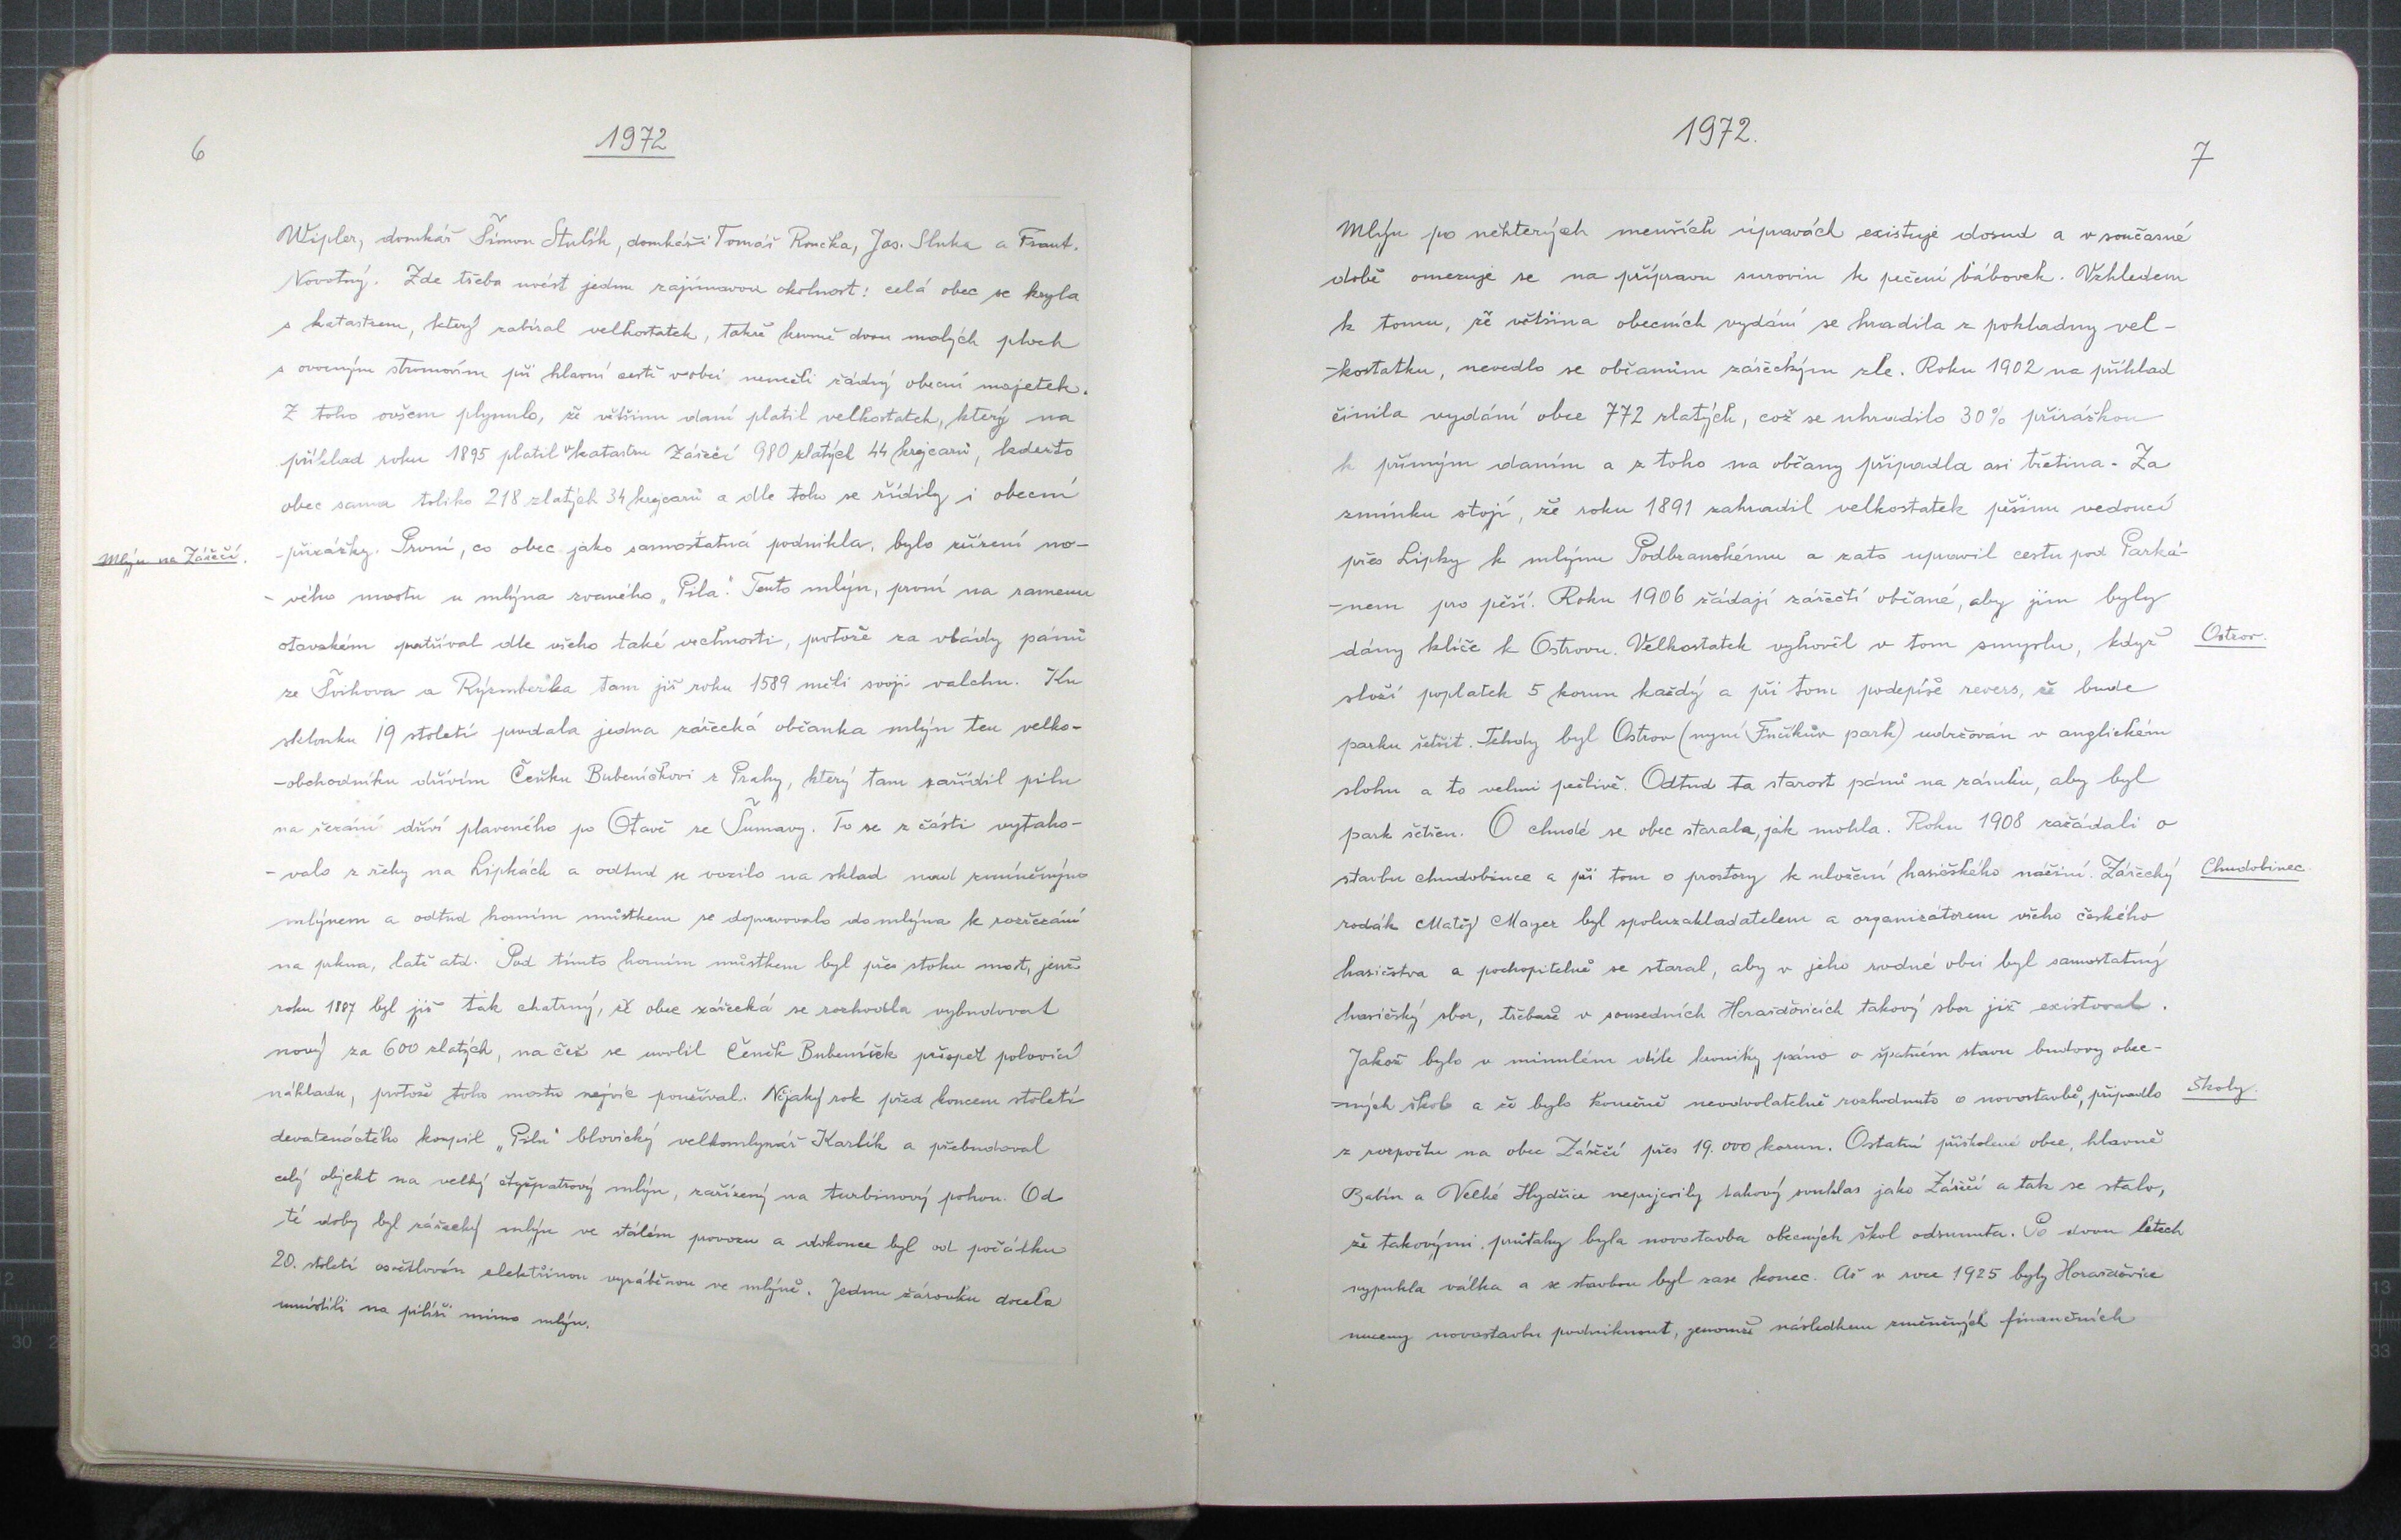 6
1972
Wipler, domkář Šimon Stulík, domkáři Tomáš Roučka, Jos. Sluka a Frant.
Novotný. Zde třeba uvést jednu zajímavou okolnost: celá obec se kryla
s katastrem, který zabíral velkostatek, takže kromě dvou malých ploch
s ovocným stromovím při hlavní cestě v obci neměli žádný obecní majetek.
Z toho ovšem plynulo, že většinu daní platil velkostatek, který na
příklad roku 1895 platil v katastru Zářečí 980 zlatých 44 krejcarů, kdežto
obec sama toliko 218 zlatých 34 krejcarů a dle toho se řídily i obecní
Mlýn na Zářečí.
-přirážky. První, co obec jako samostatná podnikla, bylo zřízení no-
-vého mostu u mlýna zvaného „Pila". Tento mlýn, první na rameni
otavském patříval dle všeho také vrchnosti, protože za vlády pánů
ze Švihova a Rýzmberka tam již roku 1589 měli svoji valchu. Ku
sklonku 19 století prodala jedna zářecká občanka mlýn ten velko-
-obchodníku dřívím Čeňku Bubeníčkovi z Prahy, který tam zařídil pilu
na řezání dříví plaveného po Otavě ze Šumavy. To se z části vytaho-
-valo z řeky na Lipkách a odtud se vozilo na sklad nad zmíněným
mlýnem a odtud horním můstkem se dopravovalo do mlýna k rozřezání
na prkna, latě atd. Pod tímto horním můstkem byl přes stoku most, jenž
roku 1887 byl již tak chatrný, že obec zářecká se rozhodla vybudovat
nový za 600 zlatých, na čež se uvolil Čeněk Bubeníček přispět polovicí
nákladu, protože toho mostu nejvíc používal. Nějaký rok před koncem století
devatenáctého koupil „Pilu" blovický velkomlynář Karlík a přebudoval
celý objekt na velký čtyřpatrový mlýn, zařízený na turbinový pohon. Od
té doby byl zářecký mlýn ve stálém provozu a dokonce byl od počátku
20. století osvětlován elektřinou vyráběnou ve mlýně. Jednu žárovku docela
umístili na pilíři mimo mlýn.
1972.
7
Mlýn po některých menších úpravách existuje dosud a v současné
době omezuje se na přípravu surovin k pečení bábovek. Vzhledem
k tomu, že většina obecních vydání se hradila z pokladny vel-
-kostatku, nevedlo se občanům zářeckým zle. Roku 1902 na příklad
činila vydání obce 772 zlatých, což se uhradilo 30% přirážkou
k přímým daním a z toho na občany připadla asi třetina. Za
zmínku stojí, že roku 1891 zahradil velkostatek pěšinu vedoucí
přes Lipky k mlýnu Podbranskému a zato upravil cestu pod Parká-
-nem pro pěší. Roku 1906 žádají zářečtí občané, aby jim byly
dány klíče k Ostrovu. Velkostatek vyhověl v tom smyslu, když
Ostrov.
složí poplatek 5 korun každý a při tom podepíše revers, že bude
parku šetřit. Tehdy byl Ostrov (nyní Fučíkův park) udržován v anglickém
slohu a to velmi pečlivě. Odtud ta starost pánů na zámku, aby byl
park šetřen. O chudé se obec starala, jak mohla. Roku 1908 zažádali o
stavbu chudobince a při tom o prostory k uložení hasičského náčiní. Zářečký
Chudobinec
rodák Matěj Mayer byl spoluzakladatelem a organizátorem všeho českého
hasičstva a pochopitelně se staral, aby v jeho rodné obci byl samostatný
hasičský sbor, třebaže v sousedních Horažďovicích takový sbor již existoval.
Jakož bylo v minulém díle kroniky psáno o špatném stavu budovy obec-
-ných škol a že bylo konečně neodvolatelně rozhodnuto o novostavbě, připadlo
Školy.
z rozpočtu na obec Zářečí přes 19.000 korun. Ostatní přiškolené obce, hlavně
Babín a Velké Hydčice neprojevily takový souhlas jako Zářečí a tak se stalo,
že takovými průtahy byla novostavba obecných škol odsunuta. Po dvou letech
vypukla válka a se stavbou byl zase konec. Až v roce 1925 byly Horažďovice
nuceny novostavbu podniknout, jenomže následkem změněných finančních